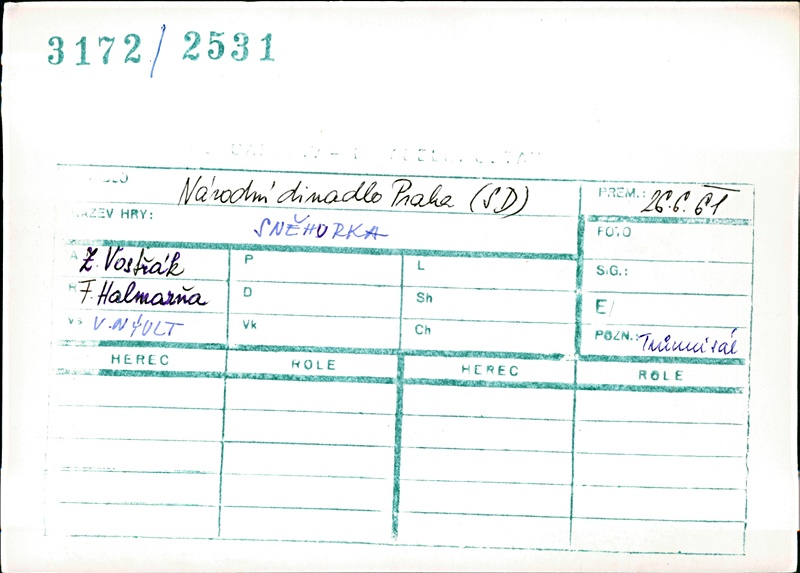 3172/2531
Národní divadlo Praha (SD)
PREM.: 26.6.61
NÁZEV HRY: SNĚHURKA
FOTO
A Z. Vostřák P L SIG.:
F. Halmazňa D Sh E/
Vs V. NÝVLT Vk Ch POZN.:
HEREC ROLE HEREC ROLE